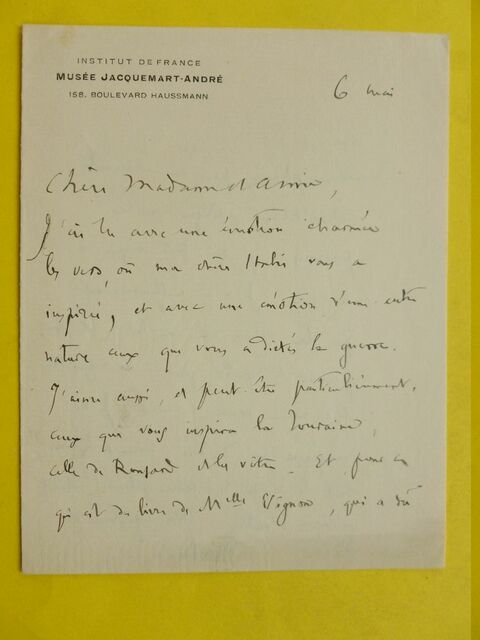 INSTITUT DE FRANCE
MUSÉE JACQUEMART-ANDRÉ
158, BOULEVARD HAUSSMANN
6 mai
Chère Madame et Amie,
J'ai lu avec une émotion charmée
les vers où ma chère Italie vous a
inspirée, et avec une émotion d'une autre
nature ceux que vous a dictés la guerre.
J'aime aussi, et peut-être particulièrement,
ceux que vous inspira la Touraine,
celle de Ronsard et la vôtre. Et pour ce
qui est du livre de Melle Vignon, qui a dû